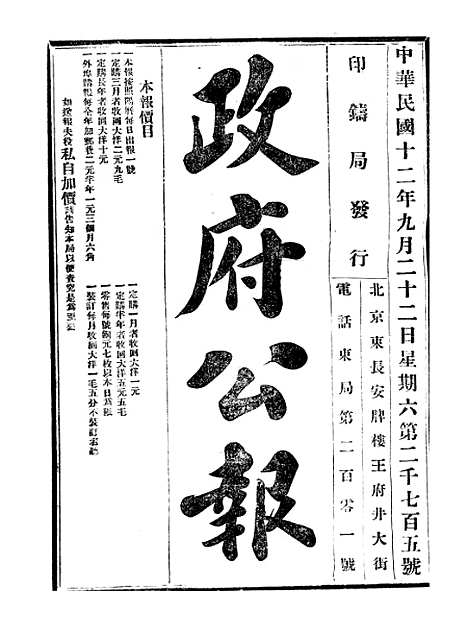 中華民國十二年九月二十二日星期六第二千七百五號
印鑄局發行
北京東長安牌樓王府井大街
電話東局第二百零一號
政府公報
本報價目
一本報按照陽曆每日出報一號
一定購三月者收回大洋二元九毛
一定購長年者收回大洋十元
一外埠購報每全年加郵費二元半年一元三個月六角
一定購一月者收回大洋一元
一定購半年者收回大洋五元五毛
一零售每號銅元七枚以本日為限
一裝訂每月收回大洋一毛五分不裝訂者聽
如送報夫役私自加價請告知本局以便查究是為至要